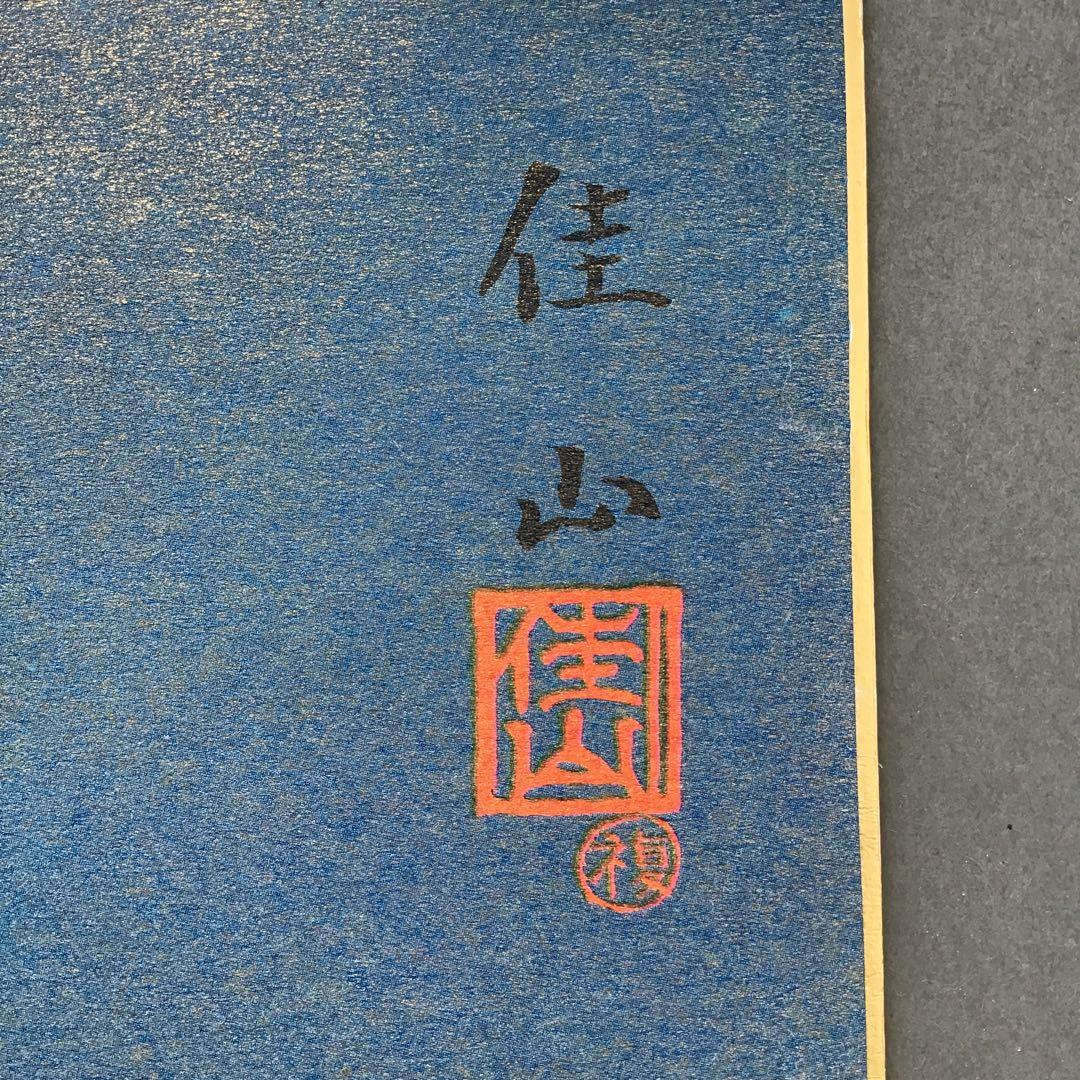 佳
山
佳山
複